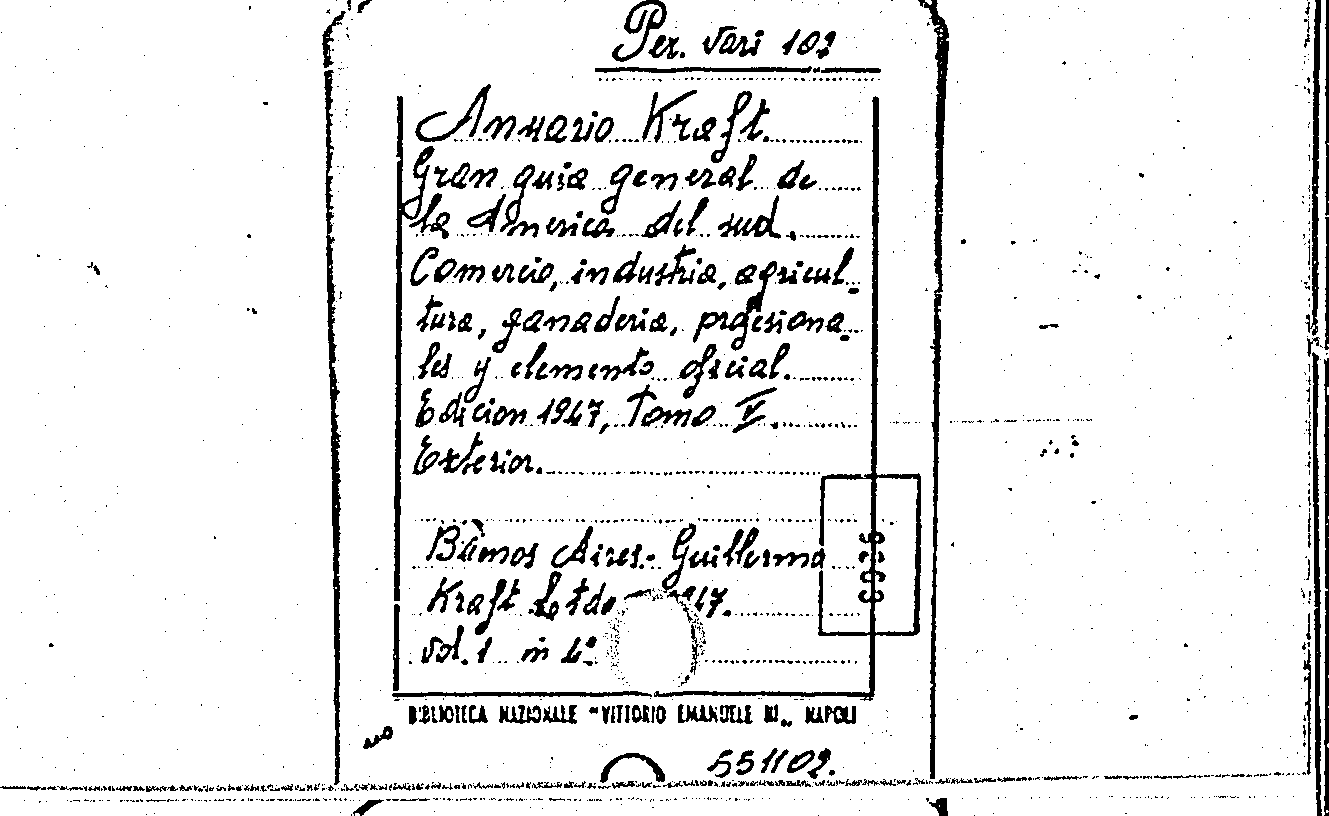 Per. vari 102
Anuario Kraft.
Gran guia general de
la America del sud.
Comercio, industria, agricul-
tura, ganaderia, profesiona-
les y elemento oficial.
Edicion 1947, Tomo V.
Exterior.
Buenos Aires.- Guillermo
Kraft Ltda 1947.
vol. 1 in 4°
BIBLIOTECA NAZIONALE "VITTORIO EMANUELE III„ NAPOLI
551102.